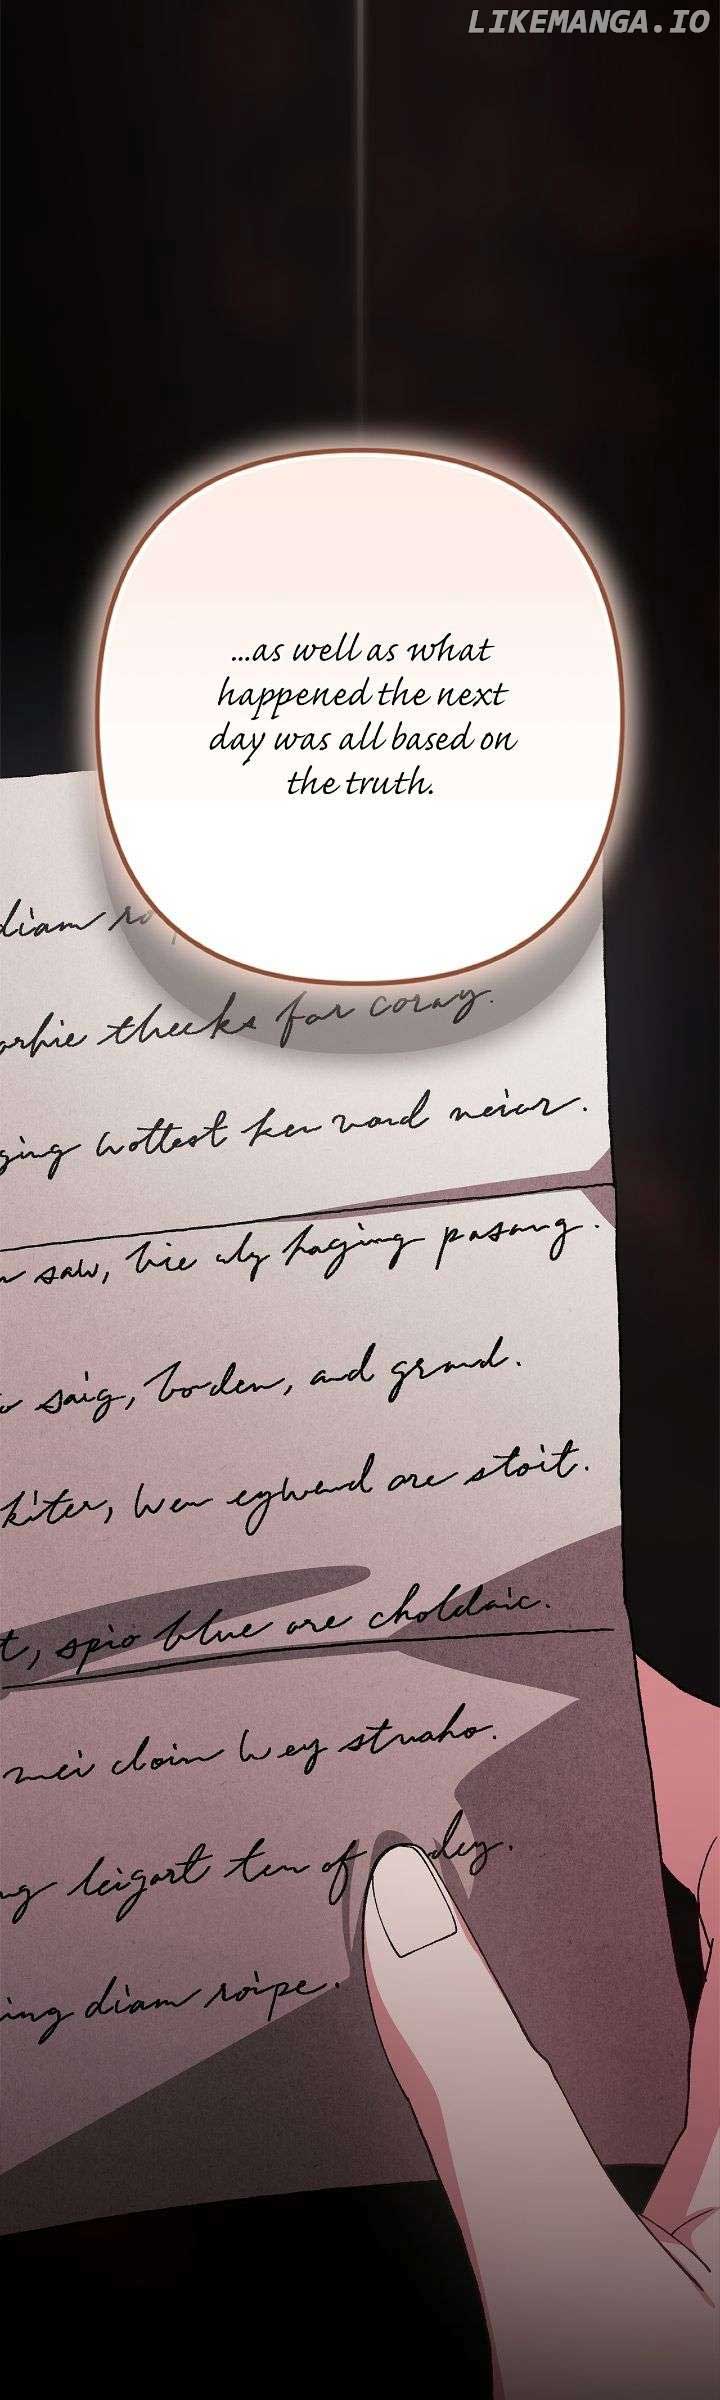 LIKEMANGA.IO
...as well as what
happened the next
day was all based on
the truth.
diam
thecks for coray.
ging wottest ken vord neior.
saw, hie haging pasang.
saig, boden, and grand.
kiter, wen eywend are stoit.
t, spio blue are choldaic.
mei cloin wey struaho.
ng leigart ten of dey.
ing diam roipe.